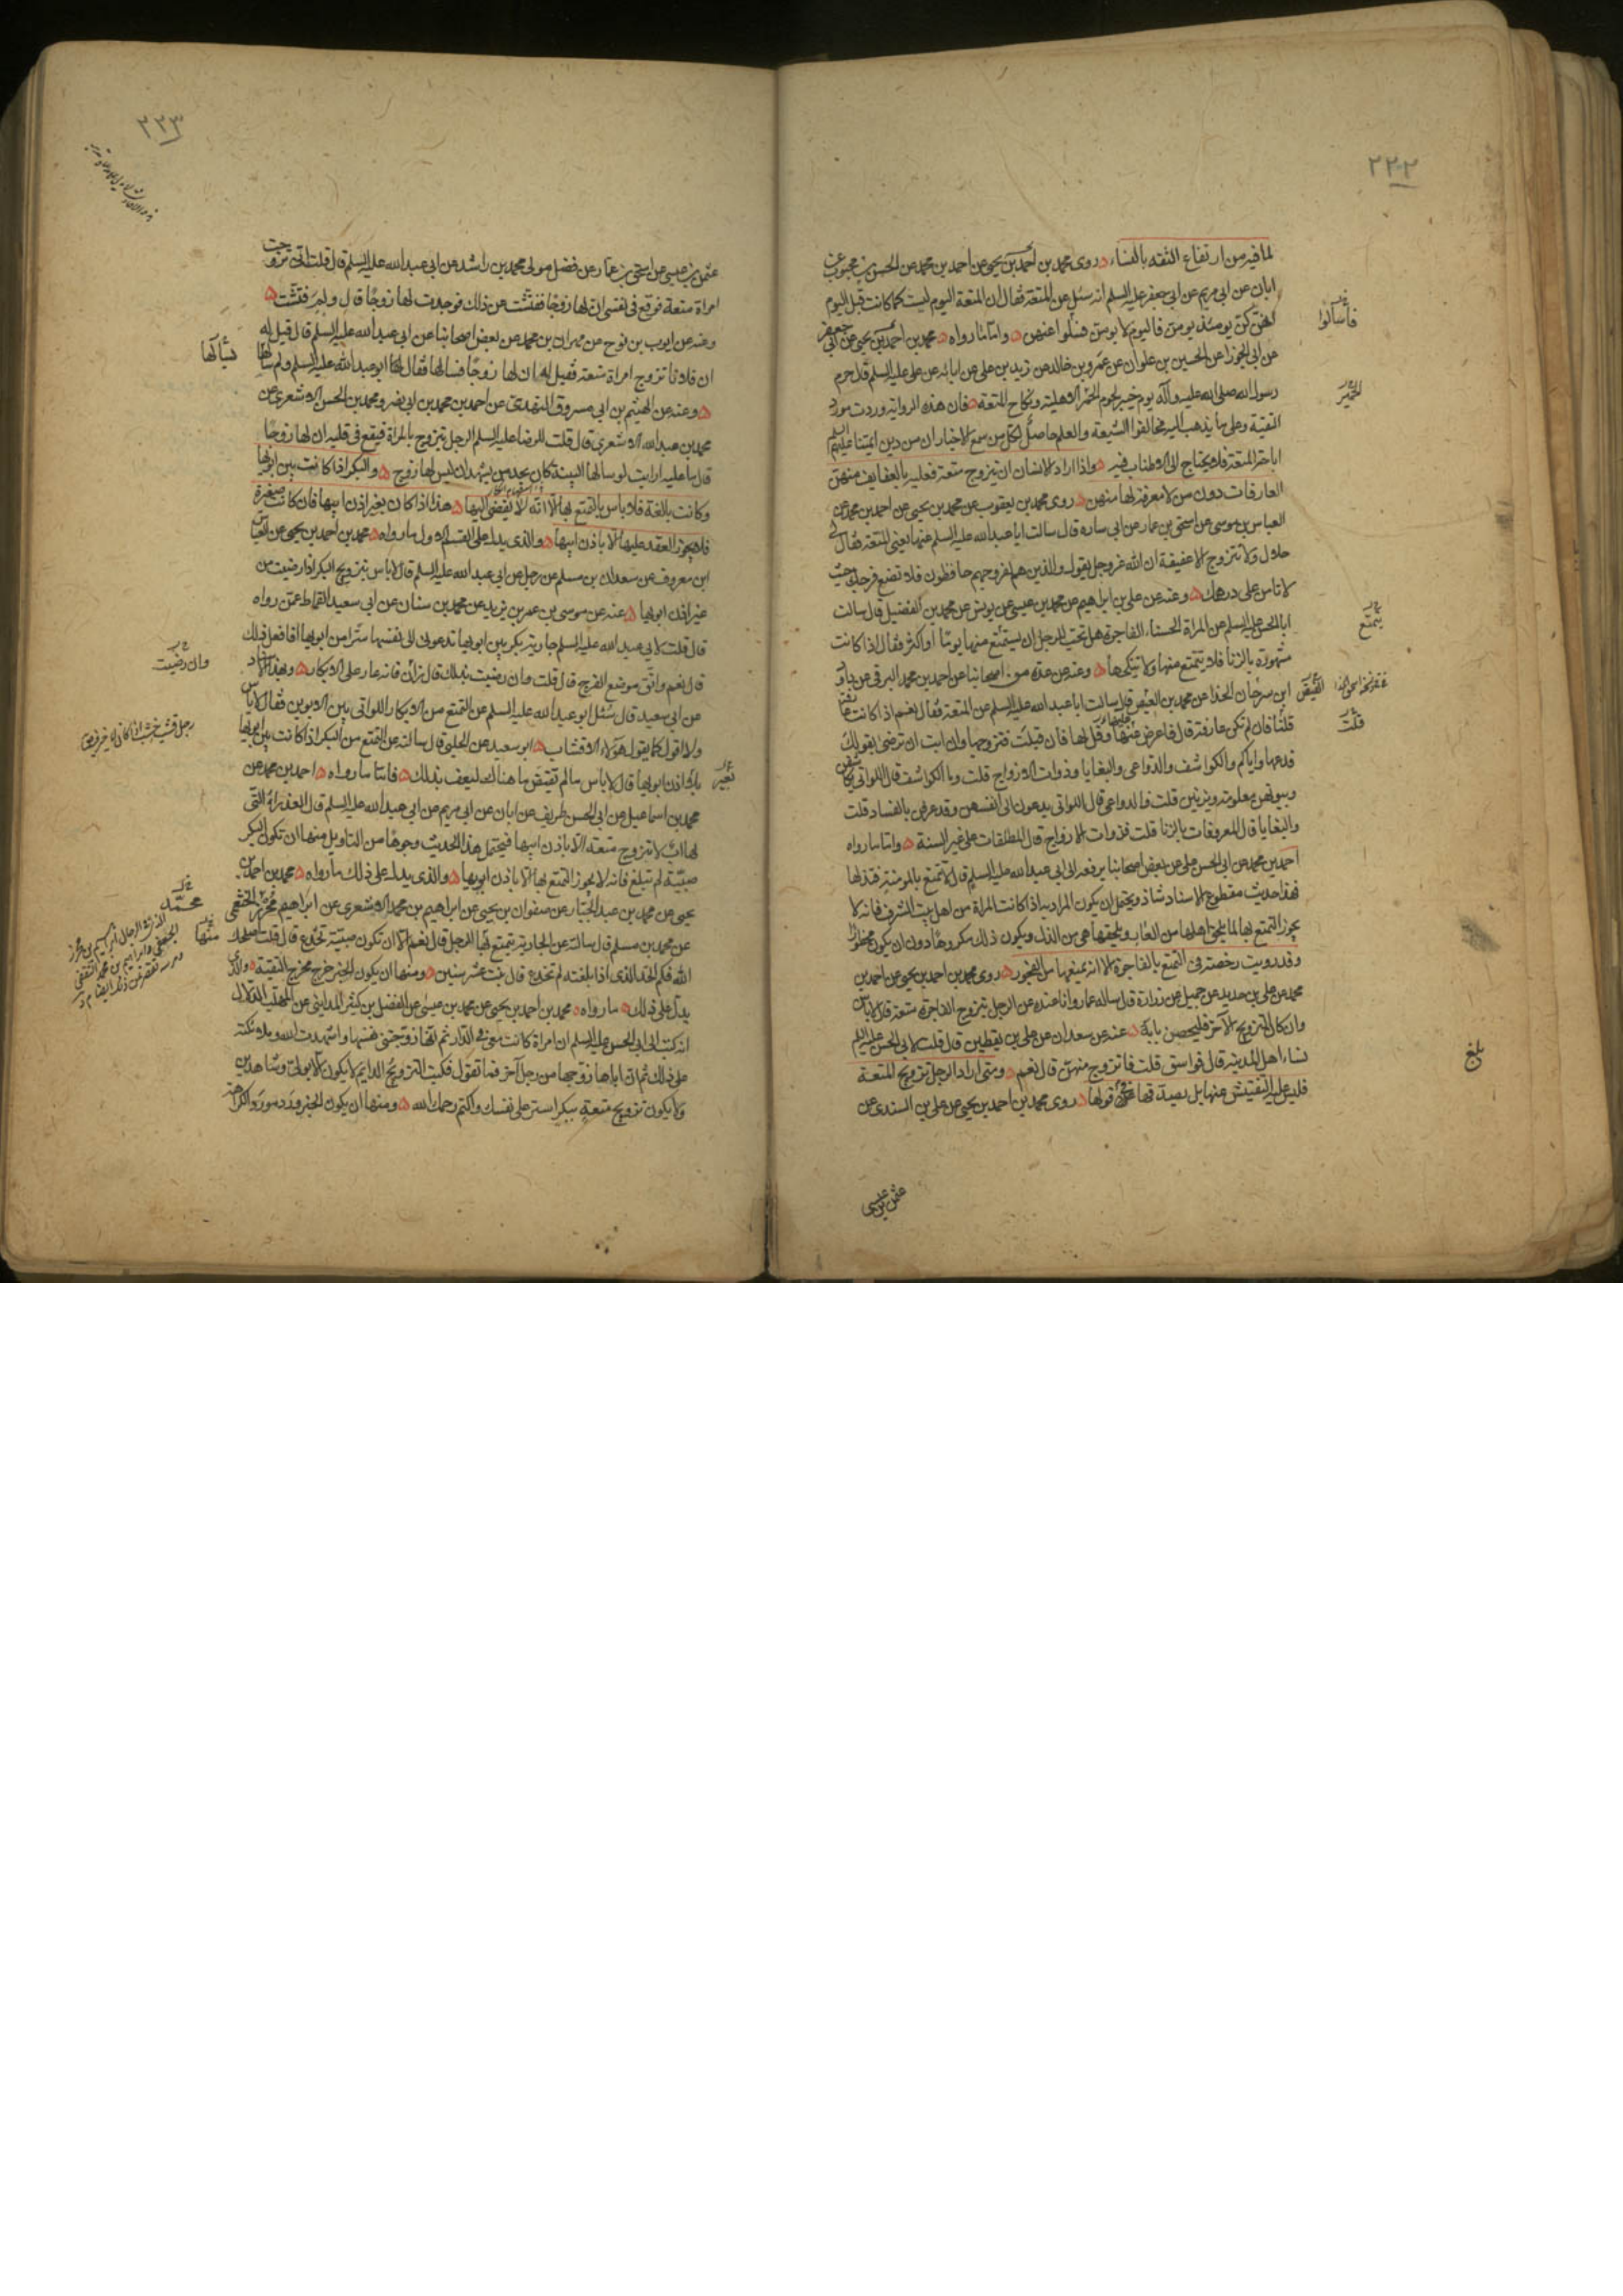 ٢٢٢
لما فيه من ارتفاع الثقه بالنساء روى محمد بن أحمد بن يحيى عن احمد بن محمد عن الحسن بن محبوب عن
ابان عن ابي مريم عن ابي جعفر عليه السلم انه سئل عن المتعة فقال ان المتعة اليوم ليست كما كانت قبل اليوم
انهن كن يومئذ يومن فاليوم لا يومن فسلوا عنهن واما ما رواه محمد بن احمد بن يحيى عن ابي جعفر
عن ابي الجوزا عن الحسين بن علوان عن عمرو بن خالد عن زيد بن علي عن ابائه عن علي عليه السلم قال حرم
رسول الله صلى الله عليه وآله يوم خيبر لحوم الحمر الاهلية ونكاح المتعة فان هذه الرواية وردت مورد
التقية وعلى ما يذهب اليه مخالفوا الشيعة والعلم حاصل لكل من سمع الاخبار ان من دين ايمتنا عليهم السلم
اباحة المتعة فلا يحتاج الى الاطناب فيه واذا اراد الانسان ان يتزوج متعة فعليه بالعفايف منهن
العارفات دون من لا معرفة لها منهن روى محمد بن يعقوب عن محمد بن يحيى عن احمد بن محمد عن
العباس بن موسى عن اسحق بن عمار عن ابي ساره قال سالت ابا عبد الله عليه السلم عنها يعني المتعة فقال لي
حلال ولا تتزوج الا عفيفة ان الله عز وجل يقول والذين هم لفروجهم حافظون فلا تضع فرجك حيث
لا تامن على درهمك وعنه عن علي بن ابراهيم عن محمد بن عيسى عن يونس عن محمد بن الفضيل قال سالت
ابا الحسن عليه السلم عن المراة الحسناء الفاجرة هل تحب للرجل ان يستمتع منها يوما أو اكثر فقال اذا كانت
مشهورة بالزنا فلا يتمتع منها ولا ينكحها وعنه عن عدة من اصحابنا عن احمد بن محمد البرقي عن داود
ابن سرحان الحذا عن محمد بن الفيض قال سالت ابا عبد الله عليه السلم عن المتعة فقال نعم اذا كانت عارفة
قلنا فان لم تكن عارفة قال فاعرض عليها وقل لها فان قبلت فتزوجها وان ابت ان ترضى بقولك
فدعها واياكم والكواشف والدواعي والبغايا وذوات الازواج قلت وما الكواشف قال اللواتي يكاشفن
وبيوتهن معلومة ويزنين قلت فالدواعي قال اللواتي يدعون الى انفسهن وقد عرفن بالفساد قلت
والبغايا قال المعروفات بالزنا قلت فذوات الازواج قال المطلقات على غير السنة واما ما رواه
احمد بن محمد عن ابي الحسن علي عن بعض اصحابنا يرفعه الى ابي عبد الله عليه السلم قال لا تتمتع بالمومنة فتذلها
فهذا حديث مقطوع الاسناد شاذ ويحتمل ان يكون المراد به اذا كانت المراة من اهل بيت الشرف فانه لا
يجوز التمتع بها لما يلحق اهلها من العار ويلحقها هي من الذل ويكون ذلك مكروها دون ان يكون محظورا
وقد رويت رخصة في التمتع بالفاجرة الا انه يمنعها من الفجور روى محمد بن احمد بن يحيى عن احمد بن
محمد عن علي بن حديد عن جميل عن زرارة قال ساله عمار وانا عنده عن الرجل يتزوج الفاجرة متعة قال لا باس
وان كان التزويج الآخر فليحصن بابه عنه عن سعدان عن علي بن يقطين قال قلت لابي الحسن عليه السلم
نساء اهل المدينة قال فواسق قلت فاتزوج منهن قال نعم ومتى اراد الرجل تزويج المتعة
فليس عليه التفتيش عنها بل يصدقها في قولها روى محمد بن احمد بن يحيى عن علي بن السندي عن
عثمن بن عيسى
فاسألوا
الحمير
يتمتع
الفيض
قلت
بلغ
٢٢٣
عثمن بن عيسى عن اسحق بن عمار عن فضل مولى محمد بن راشد عن ابي عبد الله عليه السلم قال قلت اني تزوجت
امراة متعة فوقع في نفسي ان لها زوجا ففتشت عن ذلك فوجدت لها زوجا قال ولم فتشت
وعنه عن ايوب بن نوح عن مهران بن محمد عن بعض اصحابنا عن ابي عبد الله عليه السلم قال قيل له
ان فلانا تزوج امراة متعة فقيل له ان لها زوجا فسالها فقال لها ابو عبد الله عليه السلم ولم سالها
وعنه عن الهيثم بن ابي مسروق النهدي عن احمد بن محمد بن ابي نصر ومحمد بن الحسن الاشعري عن
محمد بن عبد الله الاشعري قال قلت للرضا عليه السلم الرجل يتزوج بالمراة فيقع في قلبه ان لها زوجا
قال ما عليه ارايت لو سالها البينة كان يجد من يشهد ان ليس لها زوج والبكر اذا كانت بين ابويها
وكانت بالغة فلا باس بالتمتع بها الا انه لا يفضي اليها هذا اذا كان بغير اذن ابيها فان كانت صغيرة
فلا يجوز العقد عليها الا باذن ابيها والذي يدل على القسم الاول ما رواه محمد بن احمد بن يحيى عن العباس
ابن معروف عن سعدان بن مسلم عن رجل عن ابي عبد الله عليه السلم قال لا باس بتزويج البكر اذا رضيت من
غير اذن ابويها عنه عن موسى بن عمر بن يزيد عن محمد بن سنان عن ابي سعيد القماط عمن رواه
قال قلت لابي عبد الله عليه السلم جارية بكر بين ابويها تدعوني الى نفسها سرا من ابويها افافعل ذلك
قال نعم واتق موضع الفرج قال قلت فان رضيت بذلك قال وان فانه عار على الابكار وبهذا الاسناد
عن ابي سعيد قال سئل ابو عبد الله عليه السلم عن التمتع من الابكار اللواتي بين الابوين فقال لا باس
ولا اقول كما يقول هؤلاء الاقشاب ابو سعيد عن الحلبي قال سالته عن التمتع من البكر اذا كانت بين ابويها
بلا اذن ابويها قال لا باس ما لم تقتض ما هناك لتعف بذلك فاما ما رواه احمد بن محمد عن
محمد بن اسماعيل عن ابي الحسن ظريف عن ابان عن ابي مريم عن ابي عبد الله عليه السلم قال العذراء التي
لها اب لا تتزوج متعة الا باذن ابيها فيحتمل هذا الحديث وجوها من التاويل منها ان تكون البكر
صبية لم تبلغ فانه لا يجوز التمتع بها الا باذن ابويها والذي يدل على ذلك ما رواه محمد بن احمد بن
يحيى عن محمد بن عبد الجبار عن صفوان بن يحيى عن ابراهيم بن محمد الاشعري عن ابراهيم محرز الخثعمي
عن محمد بن مسلم قال سالته عن الجارية يتمتع بها الرجل قال نعم الا ان تكون صبية تخدع قال قلت اصلحك
الله فكم الحد الذي اذا بلغته لم تخدع قال بنت عشر سنين ومنها ان يكون الخبر خرج مخرج التقية والذي
يدل على ذلك ما رواه محمد بن احمد بن يحيى عن محمد بن عيسى عن الفضل بن كثير المدايني عن المهلب الدلال
انه كتب الى ابي الحسن عليه السلم ان امراة كانت معي في الدار ثم انها زوجتني نفسها واشهدت الله وملائكته
على ذلك ثم ان اباها زوجها من رجل آخر فما تقول فكتب التزويج الدايم لا يكون الا بولي وشاهدين
ولا يكون تزويج متعة ببكر استر على نفسك واكتم رحمك الله ومنها ان يكون الخبر ورد مورد الكراهة
وان رضيت
محمد
منها